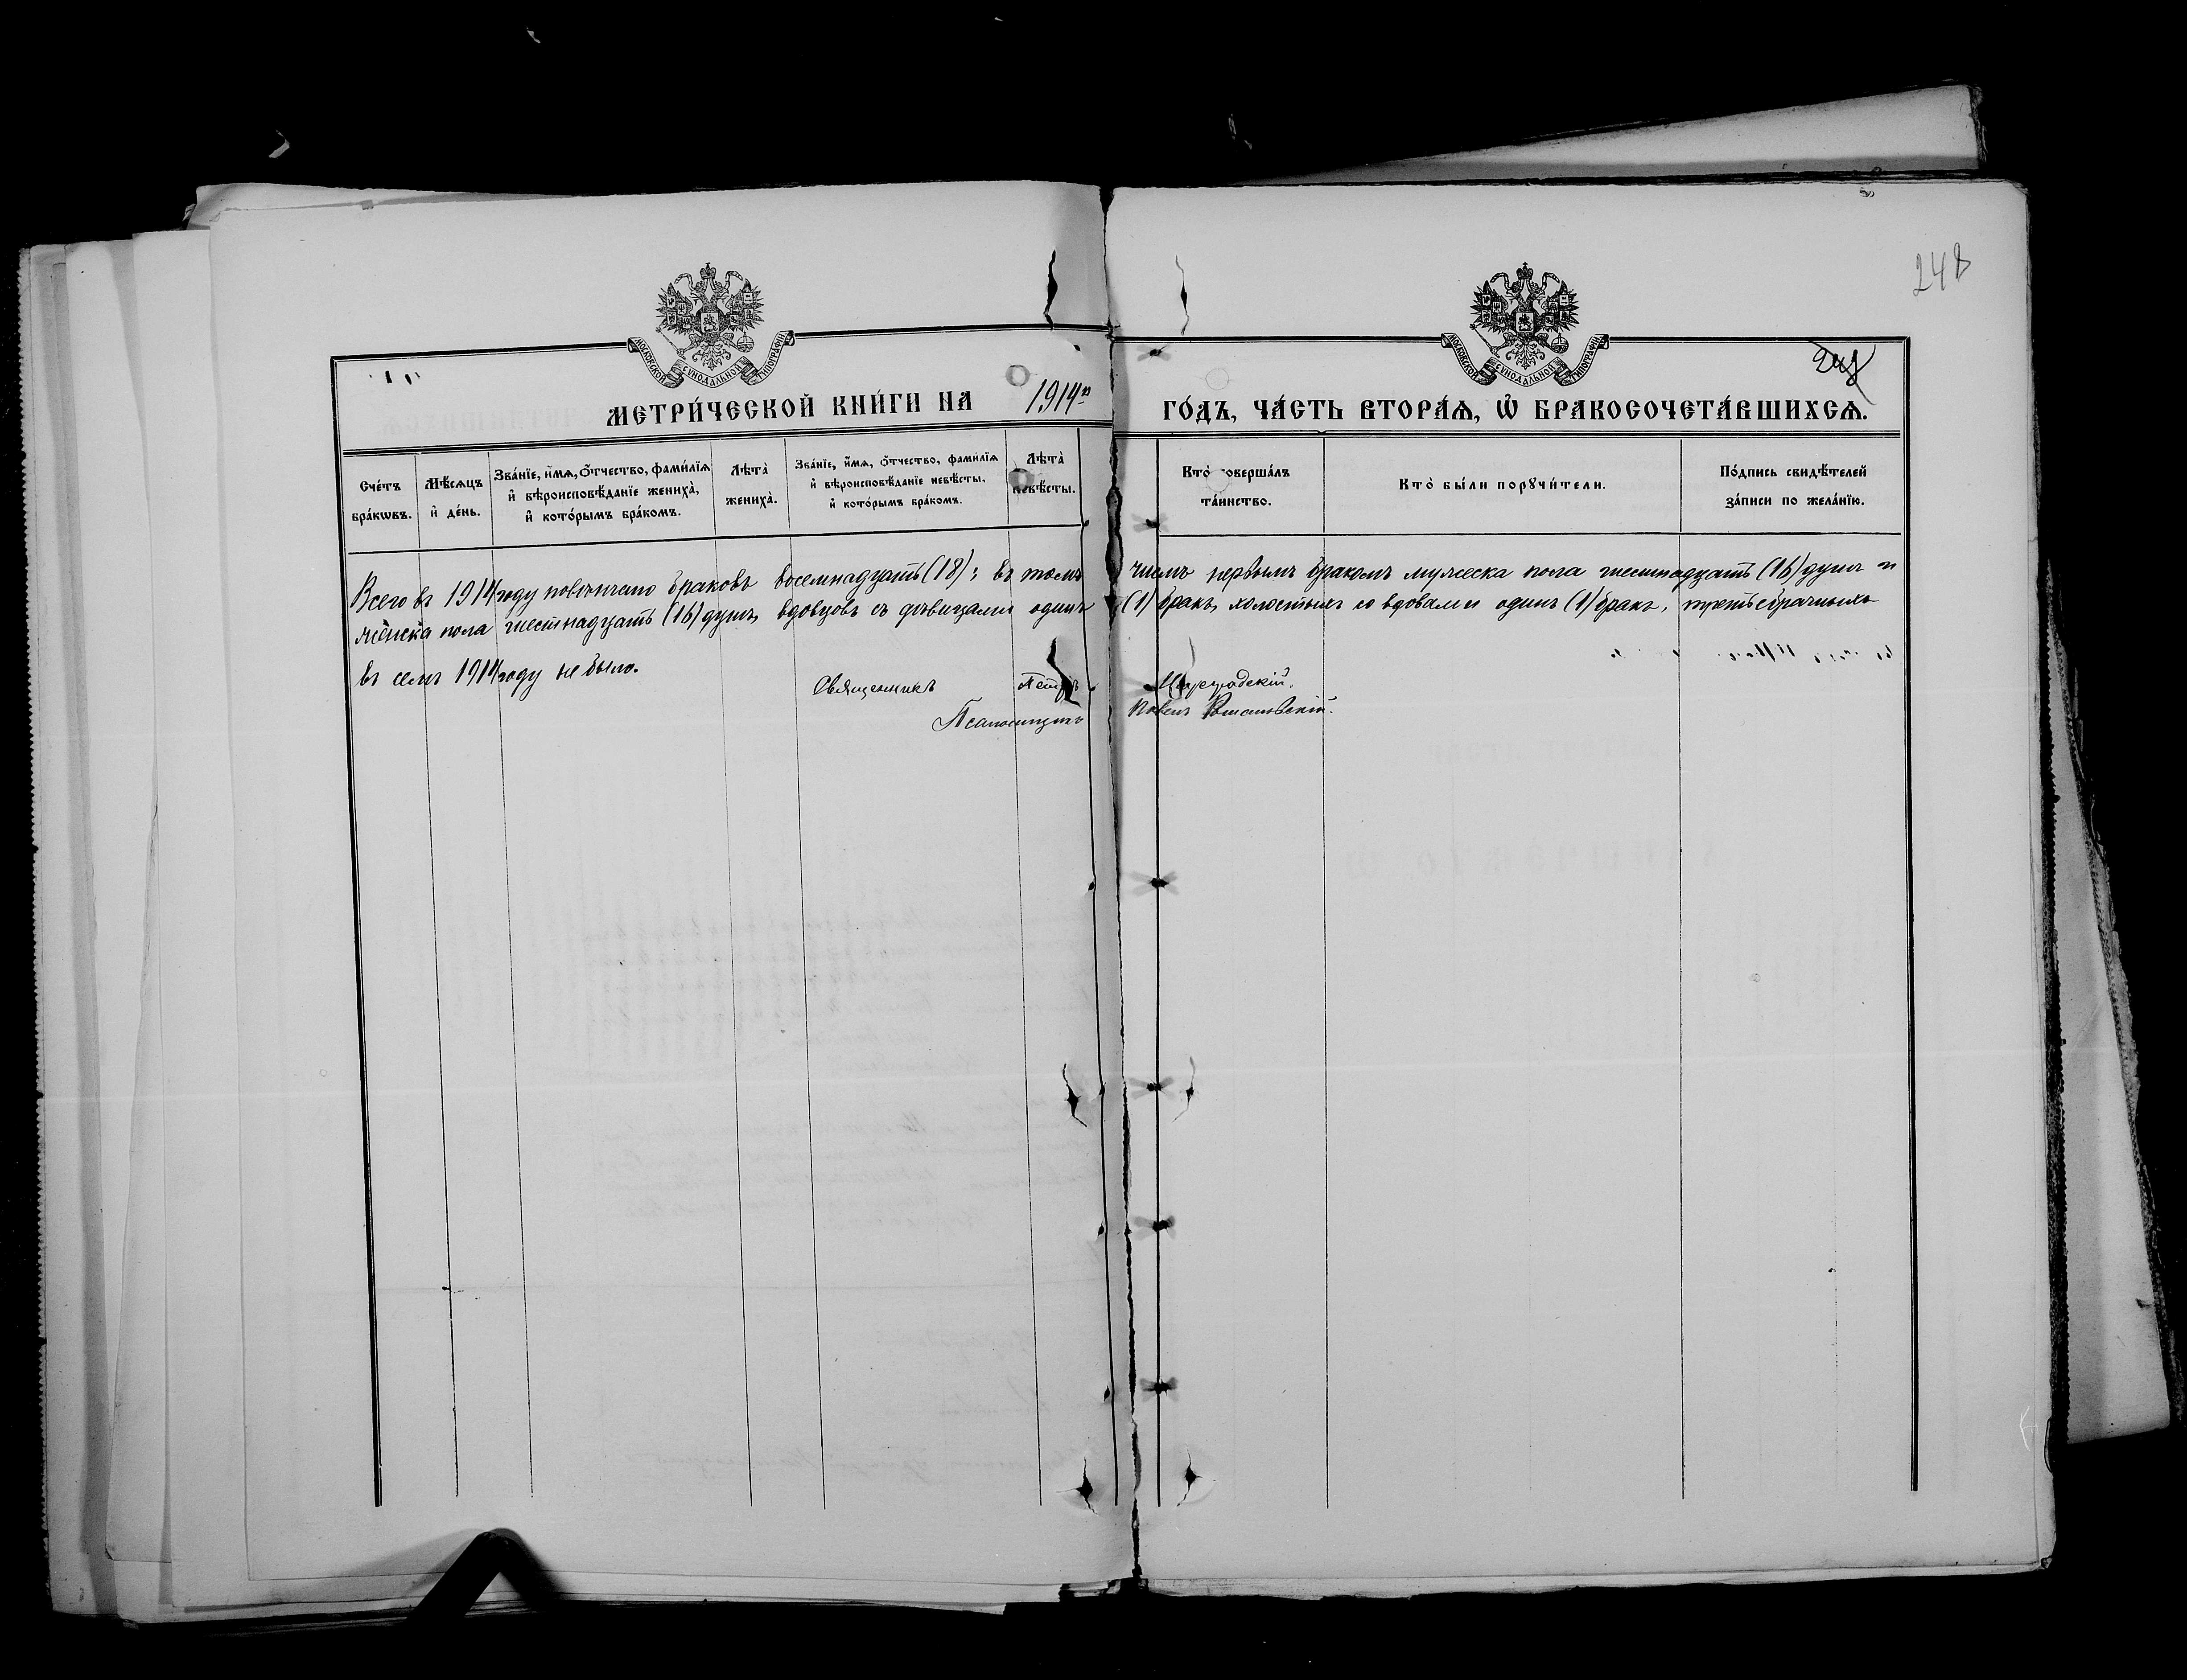 248
МОСКОВСКОЙ СѴНОДАЛЬНОЙ ТИПОГРАФІИ
МОСКОВСКОЙ СѴНОДАЛЬНОЙ ТИПОГРАФІИ
МЕТРИ́ЧЕСКОЙ КНИ́ГИ НА 1914й ГО́ДЪ, ЧА́СТЬ ВТОРА́Ѧ, Ѽ БРАКОСОЧЕТА́ВШИХСѦ.
Сче́тъ бра́кѡвъ.
Мѣ́сѧцъ и҆ де́нь.
Зва́нїе, и҆́мѧ, ѻ҆́тчество, фами́лїѧ
и҆ вѣроисповѣ́данїе жениха̀,
и҆ кото́рымъ бра́комъ.
Лѣта̀
жениха̀.
Зва́нїе, и҆́мѧ, ѻ҆́тчество, фами́лїѧ
и҆ вѣроисповѣ́данїе невѣ́сты,
и҆ кото́рымъ бра́комъ.
Лѣта̀
невѣ́сты.
Кто̀ соверша́лъ
та́инство.
Кто̀ бы́ли порꙋчи́тели.
По́дпись свидѣ́телей
за́писи по жела́нїю.
Всего въ 1914 году повѣнчано браковъ восемнадцать (18); въ томъ числѣ первымъ бракомъ мужеска пола шестнадцать (16) душъ и
женска пола шестнадцать (16) душъ, вдовцовъ съ дѣвицами одинъ (1) бракъ, холостыхъ со вдовами одинъ (1) бракъ, третьебрачныхъ
въ семъ 1914 году не было.
Священникъ Петръ
Псаломщикъ Павелъ